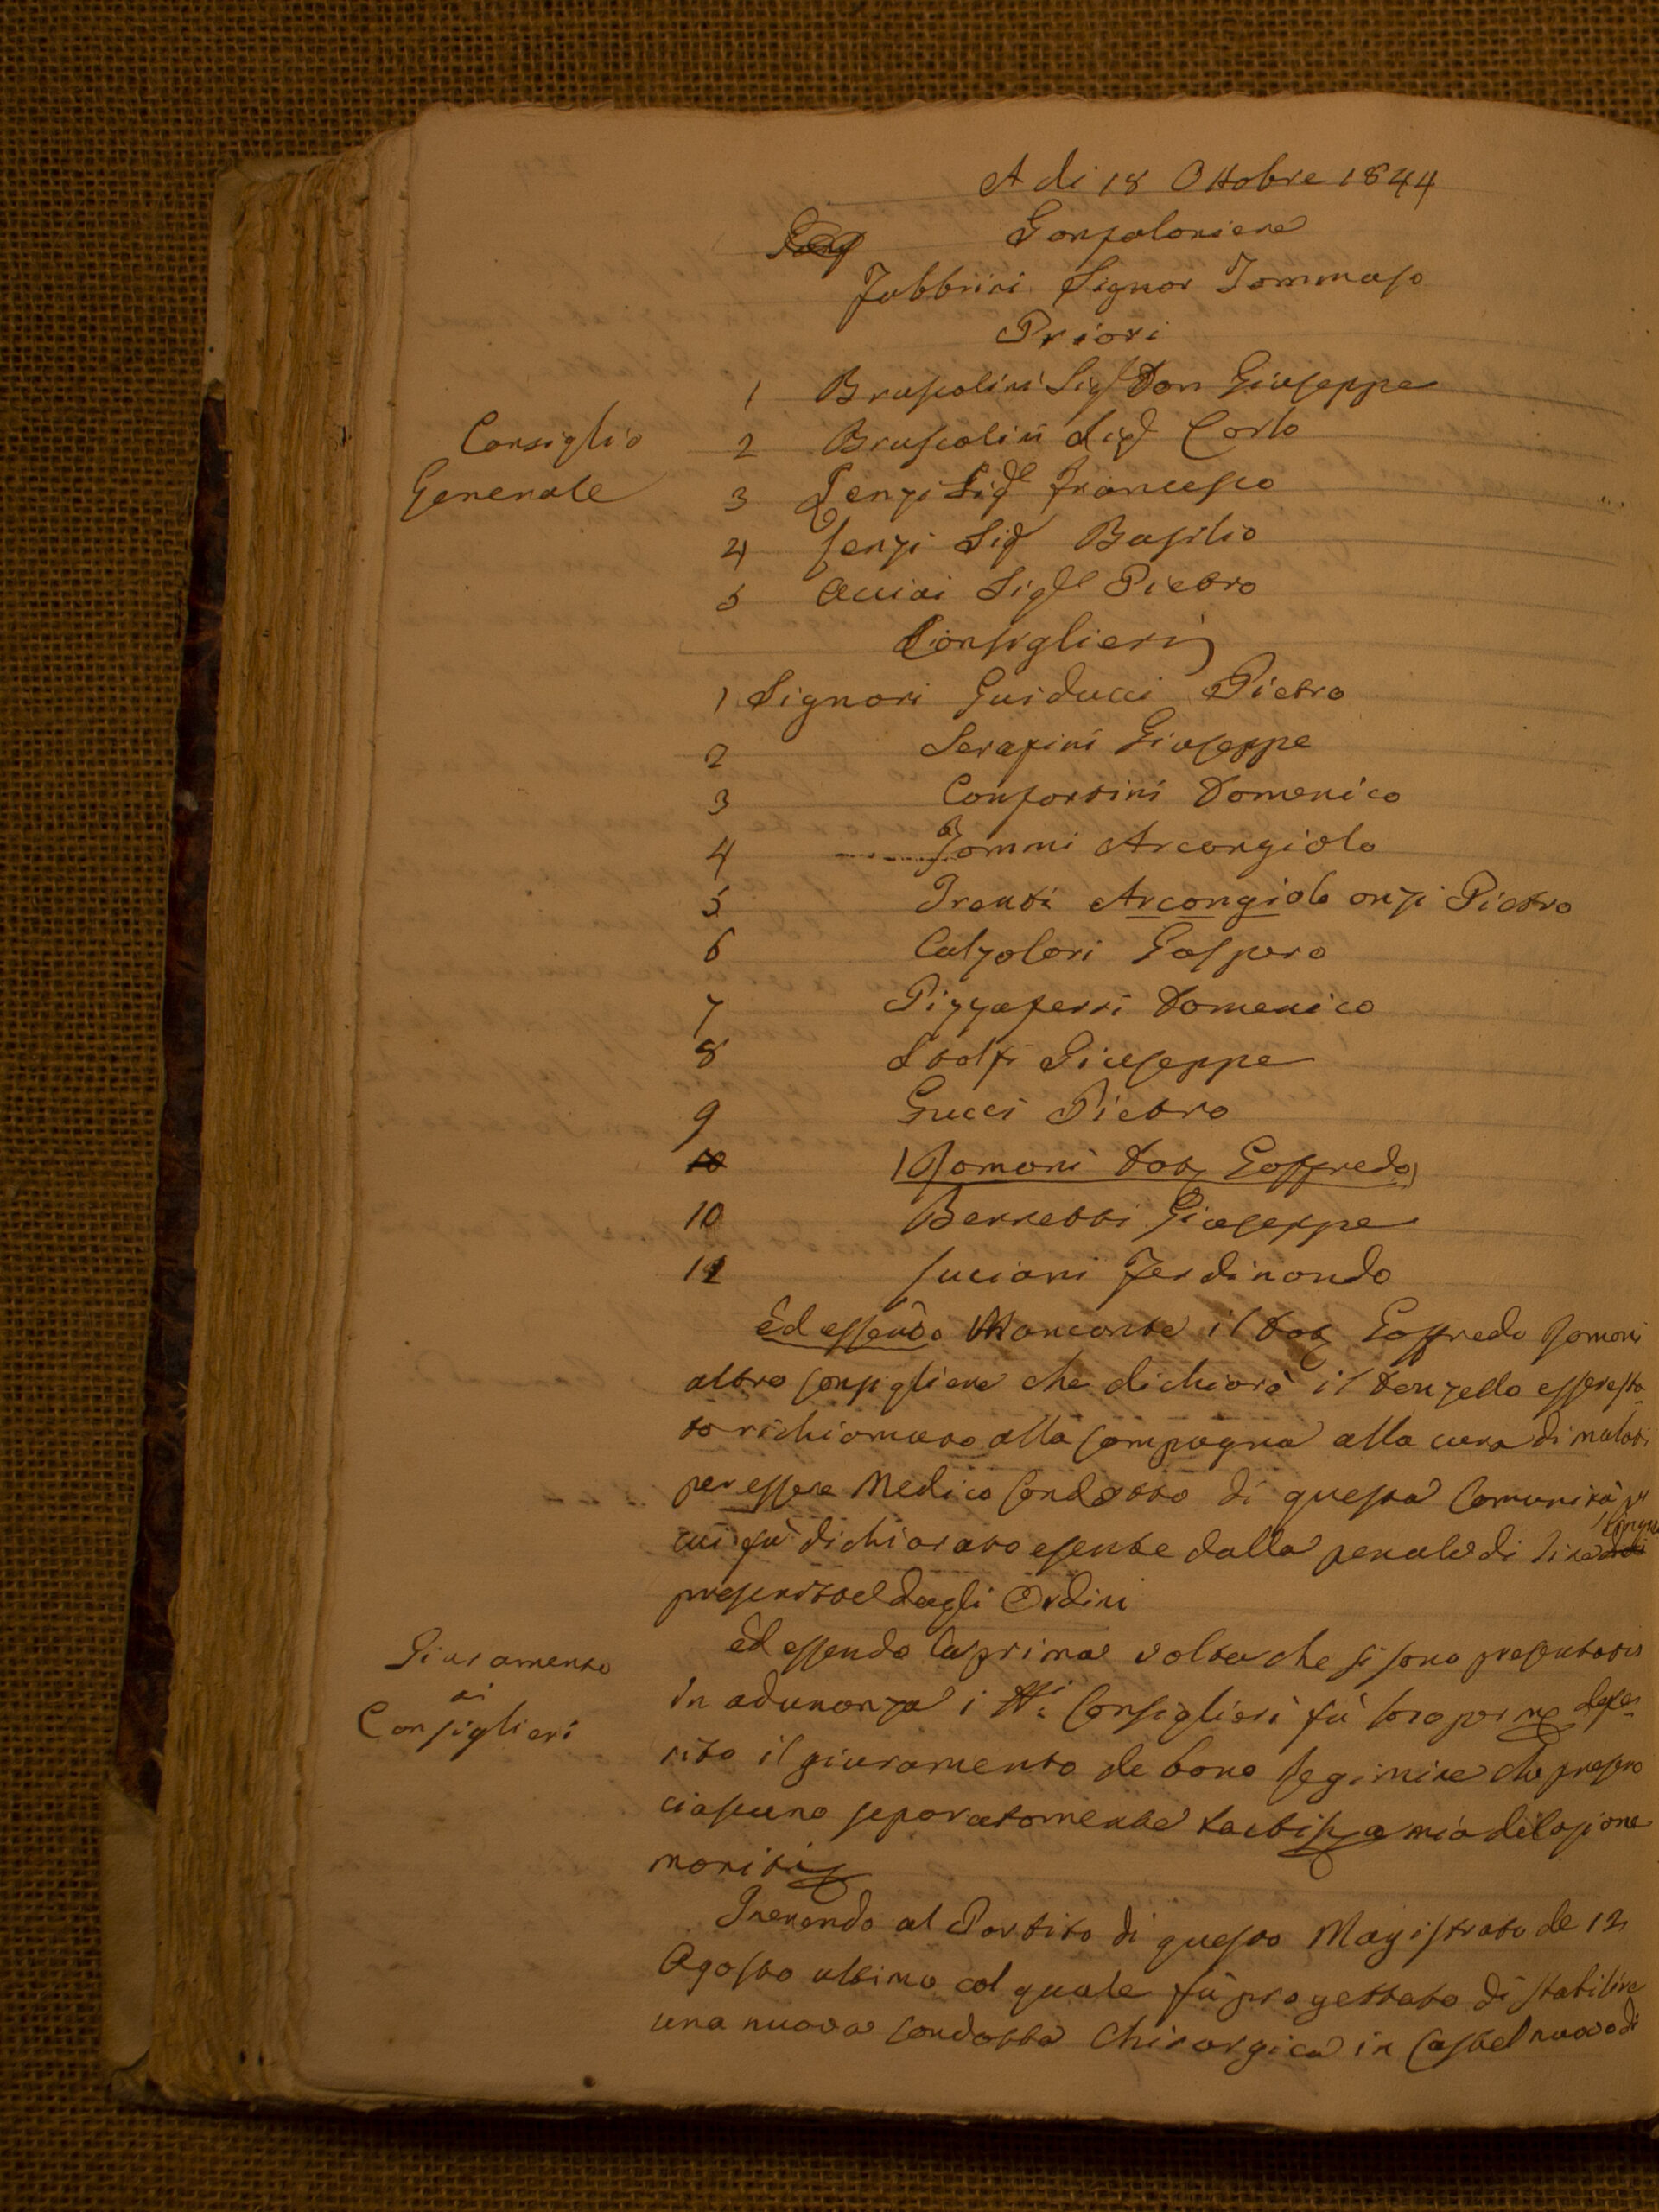 A di 18 Ottobre 1844
Gonfaloniere
Fabbrini Signor Tommaso
Priori
1 Bruscolini Sig.r Don Giuseppe
Consiglio
Generale
2 Bruscolini Sig.r Carlo
3 Lenzi Sig.r Francesco
4 Lenzi Sig.r Basilio
5 Acciai Sig.r Pietro
Consiglieri
1 Signori Guiducci Pietro
2 Serafini Giuseppe
3 Confortini Domenico
4 Tommi Arcangiolo
5 Trenti Arcangiolo anzi Pietro
6 Calzolari Gaspero
7 Pizzaferri Domenico
8 Stolfi Giuseppe
9 Gucci Pietro
10 (Romoni Dott. Goffredo)
10 Berretti Giuseppe
11 Luciani Ferdinando
Ed essendo Mancante il Dott. Goffredo Romoni
altro Consigliere che dichiarò il Donzello essere sta-
to richiamato alla Campagna alla cura di malati
per essere Medico Condotto di questa Comunità per
cui fù dichiarato esente dalla penale di Lire
prescritto dagli Ordini
Giuramento
ai
Consiglieri
Ed essendo la prima volta che si sono presentati
in adunanza i Consiglieri fù loro per me defe-
rito il giuramento de bono Regimine che presero
ciascuno separatamente tactis a mia delazione
manibus
Inerendo al Partito di questo Magistrato de 12
Agosto ultimo col quale fù progettato di stabilire
una nuova Condotta Chirurgica in Castelnuovo di